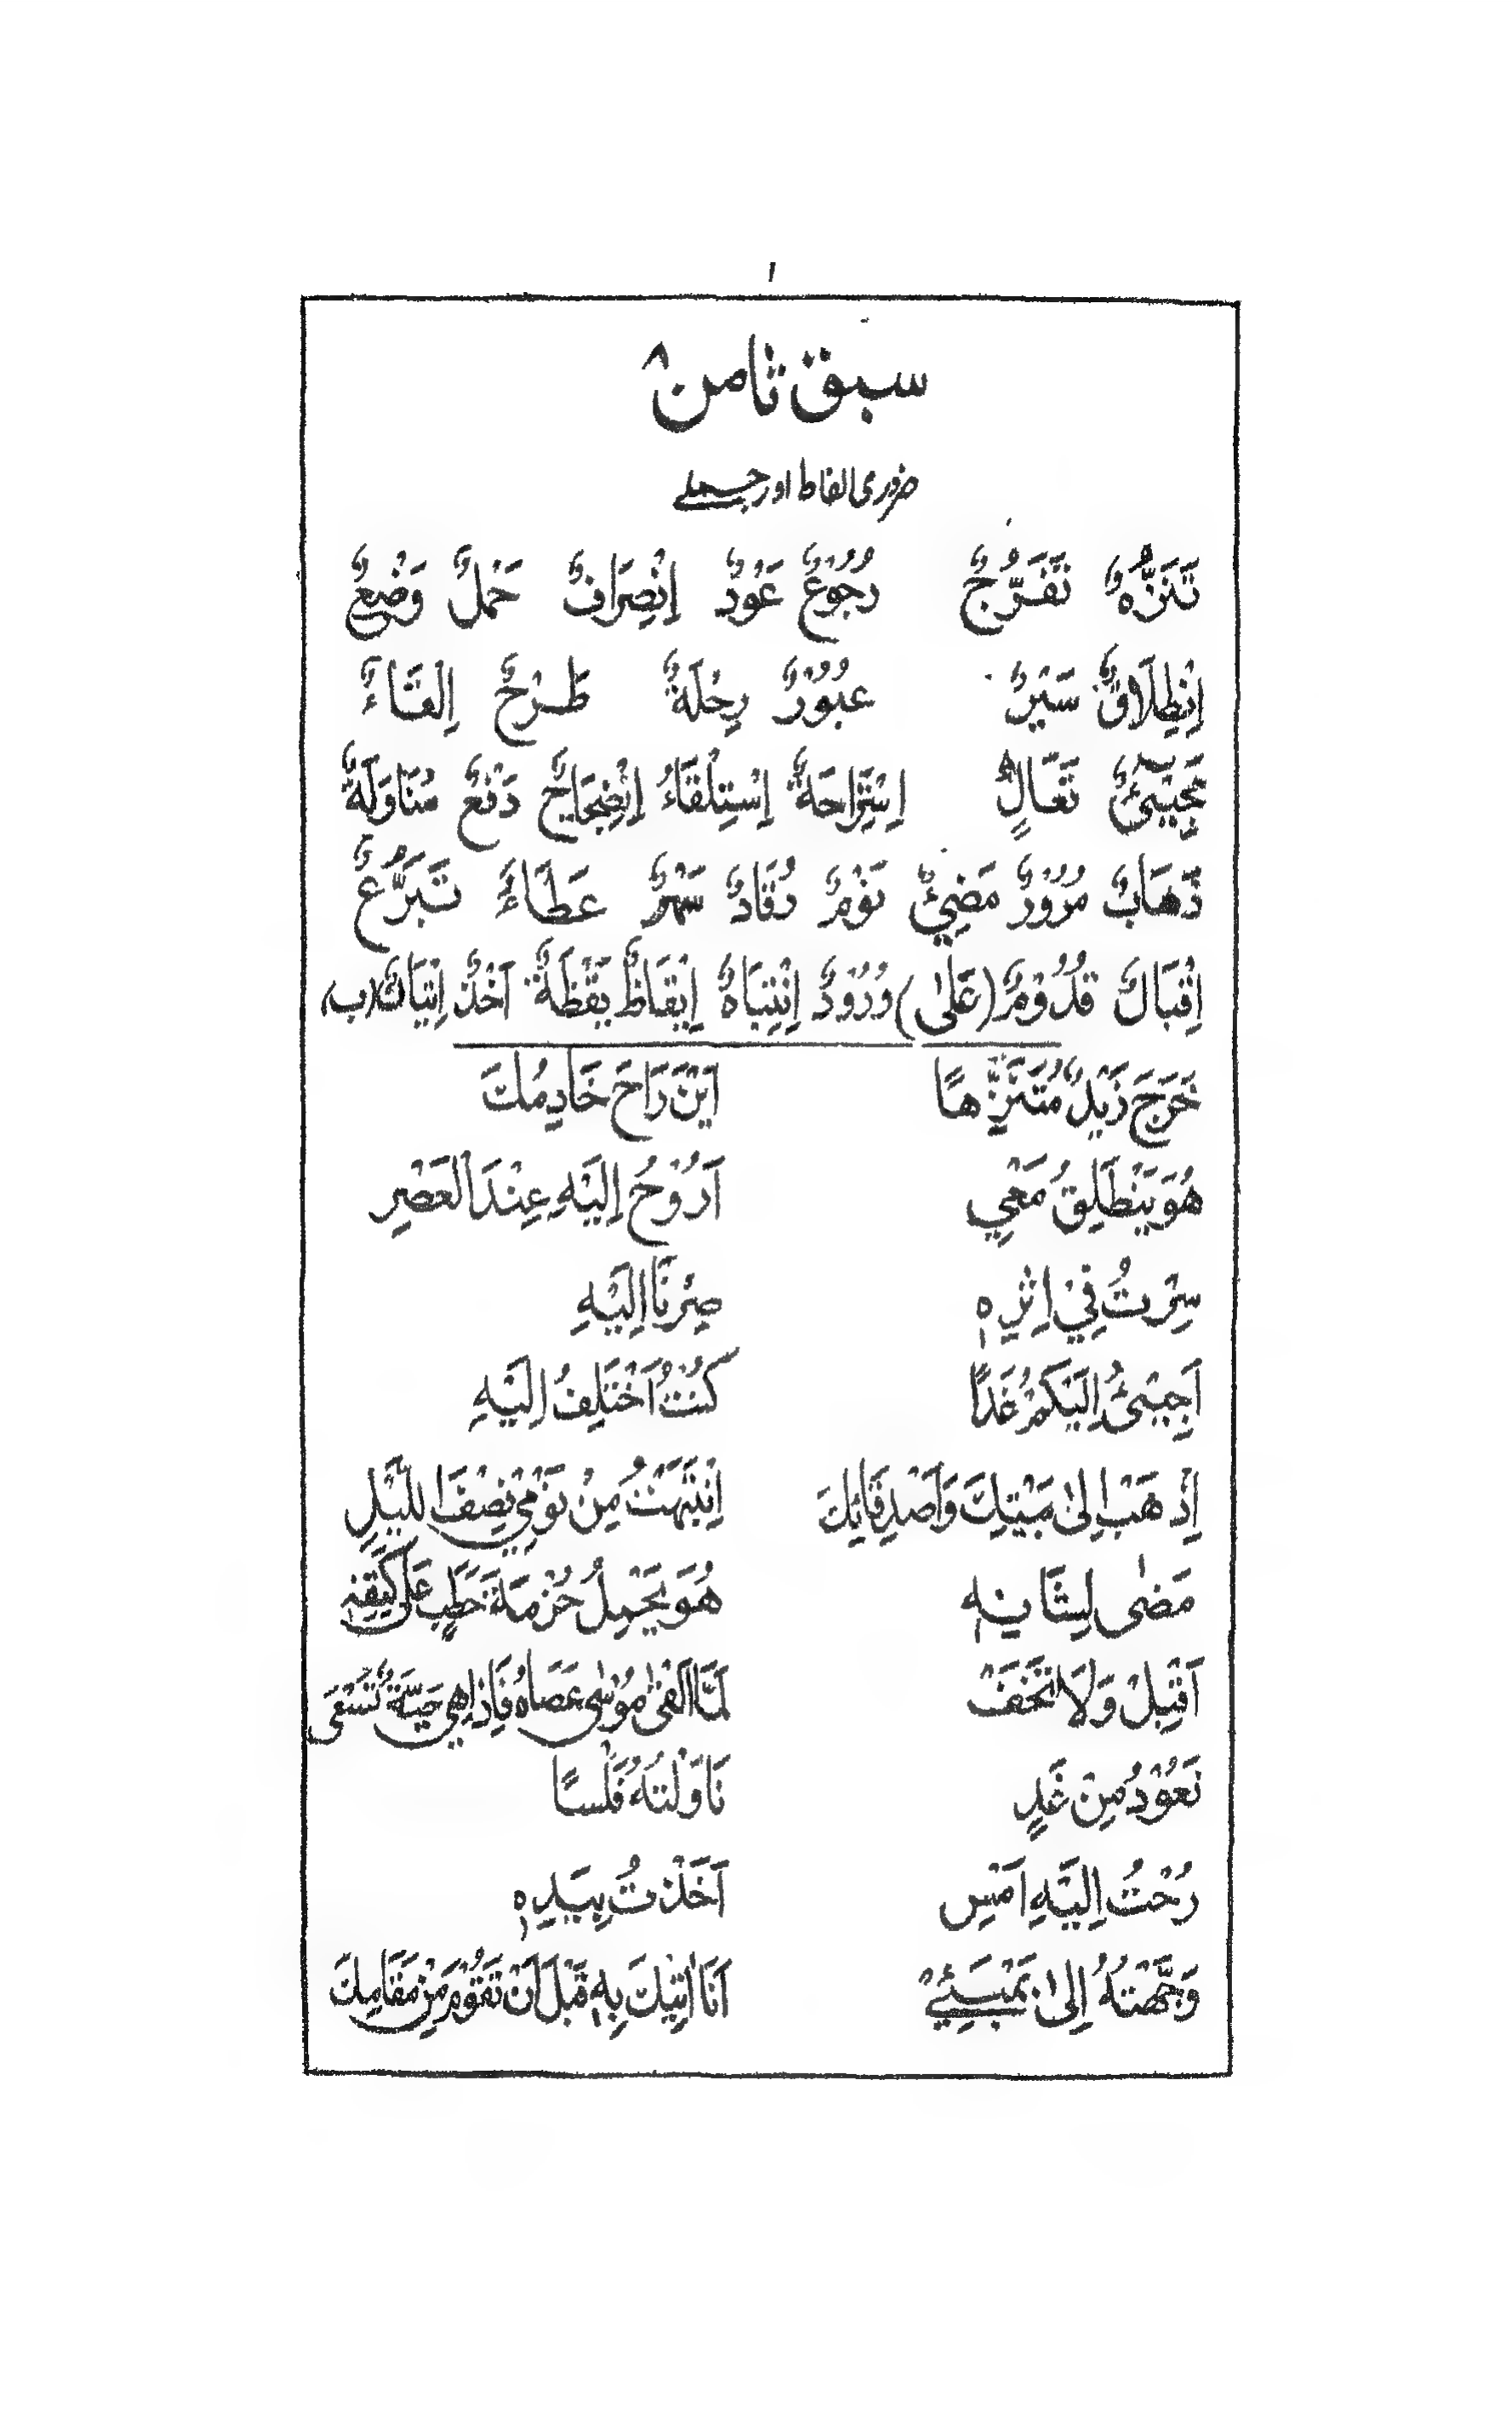 سبق ثامن ۸
ضروری الفاظ اور جملے
تَنَزُّہٌ تَفَرُّجٌ رُجُوْعٌ عَوْدٌ اِنْصِرَافٌ حَمْلٌ وَضْعٌ
اِنْطِلَاقٌ سَیْرٌ عُبُوْرٌ رِحْلَةٌ طَرْحٌ اِلْقَاءٌ
مَجِیْئٌ تَعَالٍ اِسْتِرَاحَةٌ اِسْتِلْقَاءٌ اِنْضِجَاعٌ دَفْعٌ مُنَاوَلَةٌ
ذَهَابٌ مُرُوْرٌ مَضِیْئٌ نَوْمٌ رُقَادٌ سَهَرٌ عَطَاءٌ تَبَرُّعٌ
اِقْبَالٌ قُدُوْمٌ (عَلٰی) وُرُوْدٌ اِنْتِبَاهٌ اِیْقَاظٌ یَقْظَةٌ اَخْذٌ اِتْیَانٌ (ب)
خَرَجَ زَیْدٌ مُتَنَزِّهًا اَیْنَ رَاحَ خَادِمُكَ
هُوَ یَنْطَلِقُ مَعِي اَرُوْحُ اِلَیْهِ عِنْدَ الْعَصْرِ
سِرْتُ فِيْ اِثْرِهٖ صِرْنَا اِلَیْهِ
اَجِیْئُ اِلَیْكُمْ غَدًا كُنْتُ اَخْتَلِفُ اِلَیْهِ
اِذْهَبْ اِلٰی بَیْتِكَ وَاَصْدِقَائِكَ اِنْتَبَهْتُ مِنْ نَوْمِيْ نِصْفَ اللَّیْلِ
مَضٰی لِشَانِهٖ هُوَ یَحْمِلُ حُزْمَةَ حَطَبٍ عَلٰی كَتِفِهٖ
اَقْبِلْ وَلَا تَخَفْ لَمَّا اَلْقٰی مُوْسٰی عَصَاهُ فَاِذَا هِيَ حَیَّةٌ تَسْعٰی
نَعُوْدُ مِنْ غَدٍ نَاوَلْتُهُ فَلْسًا
رُحْتُ اِلَیْهِ اَمْسِ اَخَذْتُ بِیَدِهٖ
وَجَّهْتُهُ اِلٰی بَمْبَئِيْ اَنَا اٰتِیْكَ بِهٖ قَبْلَ اَنْ تَقُوْمَ مِنْ مَقَامِكَ